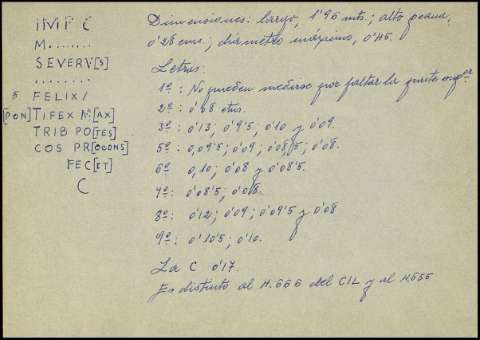 IMP C
M........
SEVERV[S]
........
5 FELIX/
[PON]TIFEX M[AX]
TRIB PO[TES]
COS PR[OCONS]
FEC[ET]
C
Dimensiones: largo, 1'96 mts.; alto peana,
0'28 cms.; diámetro máximo, 0'45.
Letras:
1ª: No pueden medirse por faltar la parte supᵉʳ
2ª: 0'08 ctms.
3ª: 0'13; 0'9'5; 0'10 y 0'09.
5ª: 0,09'5; 0'09; 0'08'5; 0'08.
6ª: 0,10; 0'08 y 0'08'5.
7ª: 0'08'5; 0'08.
8ª: 0'12; 0'09; 0'09'5 y 0'08
9ª: 0'10'5; 0'10.
La C 0'17.
Es distinto al H.666 del CIL y al H.655